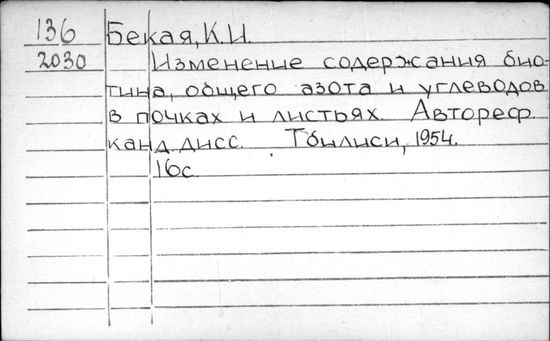 136 Бекая, К.И.
2030 Изменение содержания био-
тина, общего азота и углеводов
в почках и листьях. Автореф.
канд. дисс. Тбилиси, 1954.
16с.